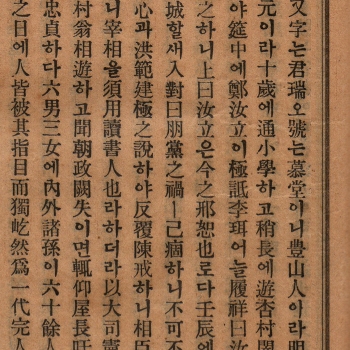 又字는君瑞오號는慕堂아니豊山人아라明
元이라十歲에通小學하고稍長에遊杏村閔
야筵中에鄭汝立이極詆李珥어늘履祥曰汝
之하니上曰汝立은今之邢恕也로다壬辰에
城할새入對曰朋黨之禍ㅣ己痼하니不可不
心과洪範建極之說하야反覆陳戒하니相臣
니宰相을須用讀書人也라하더라以大司憲
村翁相遊하고聞朝政闕失이면輒仰屋長吁
忠貞하다六男三女에內外諸孫이六十餘人
之日에人皆被其指目而獨屹然爲一代完人